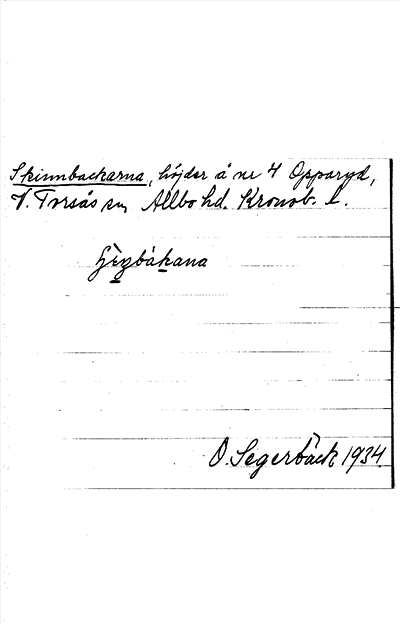 Skinnbackarna, höjder å nr 4 Opparyd,
V. Torsås sn, Allbo hd. Kronob. l.
O. Segerbäck 1934